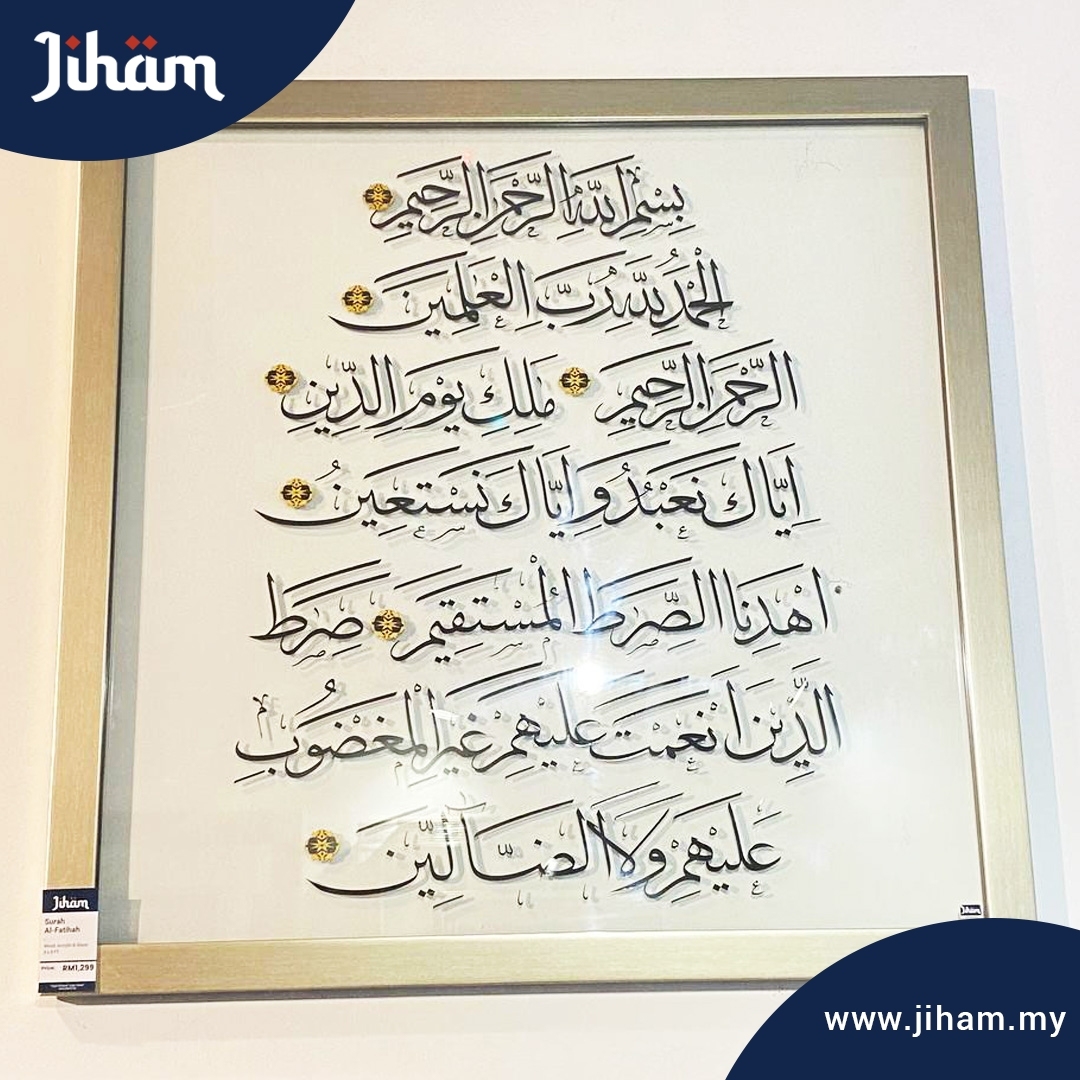 Jihäm
بِسْمِ اللّٰهِ الرَّحْمٰنِ الرَّحِيْمِ
الْحَمْدُ لِلّٰهِ رَبِّ الْعٰلَمِيْنَ
الرَّحْمٰنِ الرَّحِيْمِ مٰلِكِ يَوْمِ الدِّيْنِ
اِيَّاكَ نَعْبُدُ وَاِيَّاكَ نَسْتَعِيْنُ
اهْدِنَا الصِّرٰطَ الْمُسْتَقِيْمَ صِرٰطَ
الَّذِيْنَ اَنْعَمْتَ عَلَيْهِمْ غَيْرِ الْمَغْضُوْبِ
عَلَيْهِمْ وَلَا الضَّآلِّيْنَ
Jihäm
Surah
Al-Fatihah
Price: RM1,299
Jihäm
www.jiham.my